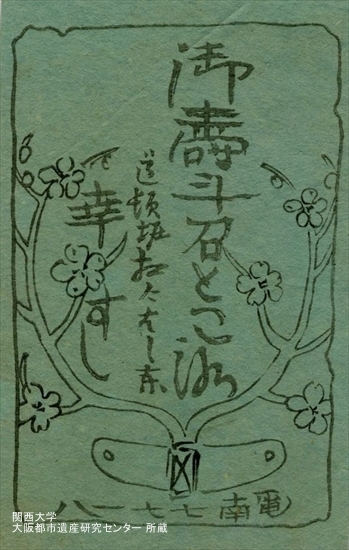 御壽斗召ところ
道頓堀相合はし東
幸すし
電南七七一八
関西大学
大阪都市遺産研究センター 所蔵